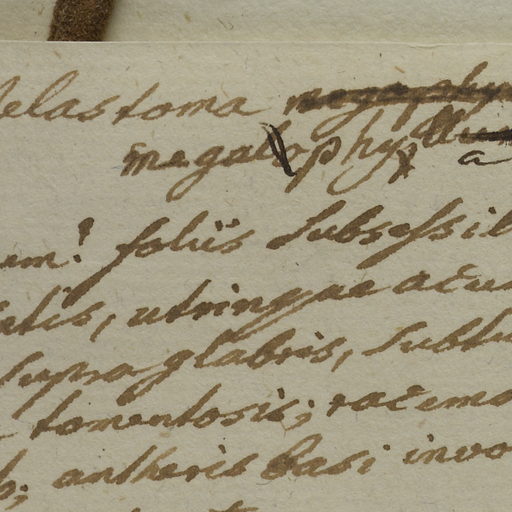 elastoma
megalophylla
em? foliis subsessil
atis, utrinque acu
supra glabris, subtu
tomentosis; racemo
antheris basi invo